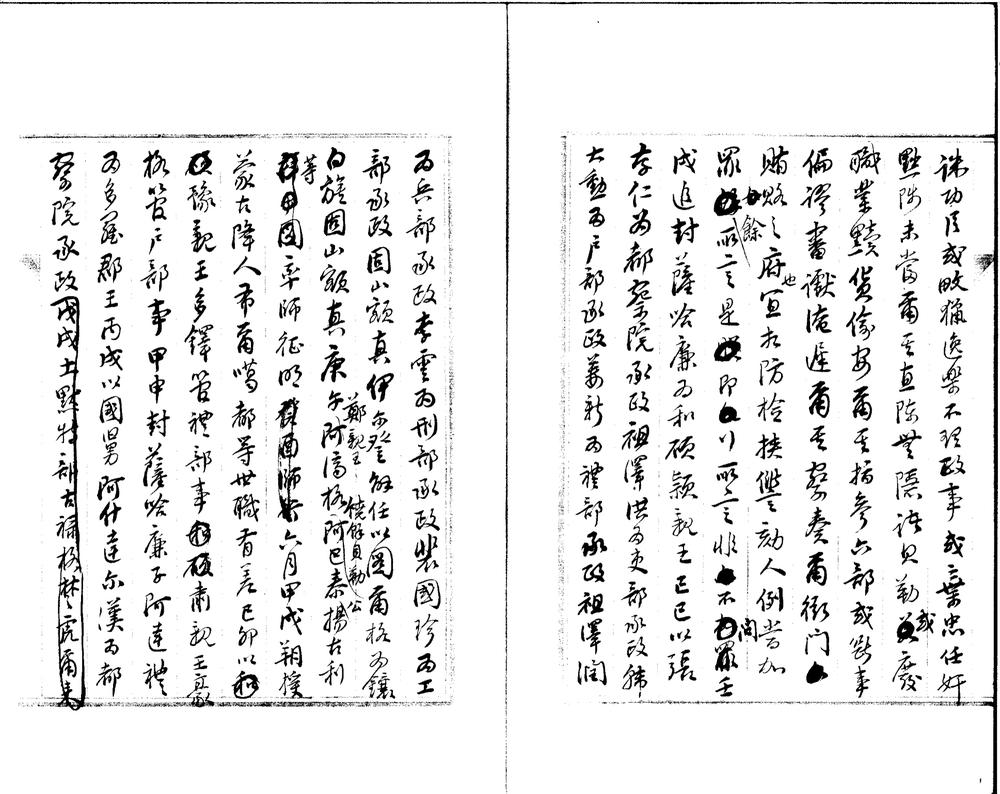 誅功臣或畋獵逸樂不理政事或棄忠任奸
黜陟未當爾其直陳無隱諸貝勒或廢
職業黷貨偷安爾其指參六部或斷事
偏謬審讞淹遲爾其察奏爾衙門
賄賂之府也宜相防檢挾讐劾人例當加
罪餘所言是即以所言非不問罪壬
戌追封薩哈廉為和碩穎親王己巳以張
存仁為都察院承政祖澤洪為吏部承政韓
大勳為戶部承政姜新為禮部承政祖澤潤
為兵部承政李雲為刑部承政裴國珍為工
部承政固山額真伊爾登解任以圖爾格為鑲
白旗固山額真庚午阿濟格阿巴泰揚古利
鄭親王 饒餘貝勒 公
等率師征明六月甲戌朔授
蒙古降人布爾噶都等世職有差己卯以
豫親王多鐸管禮部事肅親王豪
格管戶部事甲申封薩哈廉子阿達禮
為多羅郡王丙戌以國舅阿什達爾漢為都
察院承政戊戌土默特部古祿格楚虎爾來